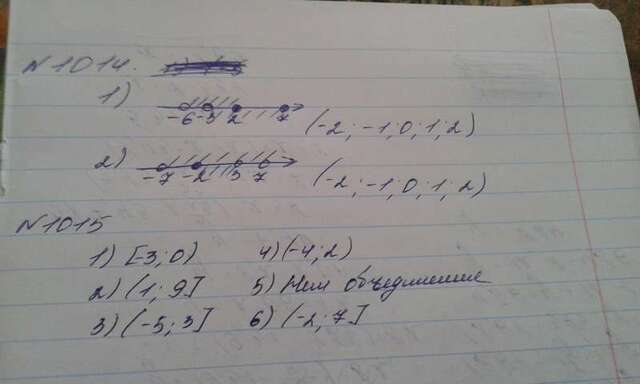 N 1014.
1) -6 -3 2 7 (-2; -1; 0; 1; 2)
2) -7 -2 3 7 (-2; -1; 0; 1; 2)
N 1015
1) [-3; 0) 4) (-4; 2)
2) (1; 9] 5) Нет объединения
3) (-5; 3] 6) (-2; 7]